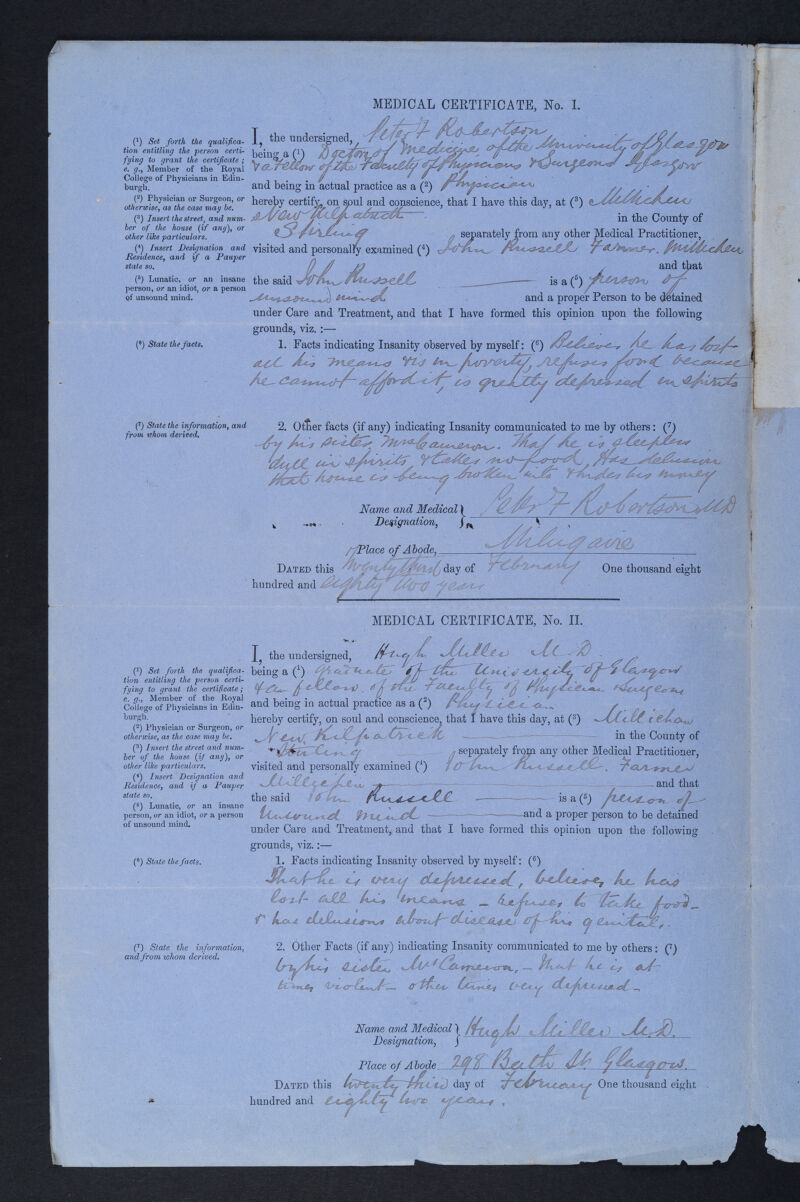 MEDICAL CERTIFICATE, No. I.
(1) Set forth the qualifica-
tion entitling the person certi-
fying to grant the certificate;
e. g., Member of the Royal
College of Physicians in Edin-
burgh.
(2) Physician or Surgeon, or
otherwise, as the case may be.
(3) Insert the street, and num-
ber of the house (if any), or
other like particulars.
(4) Insert Designation and
Residence, and if a Pauper
state so.
(5) Lunatic, or an insane
person, or an idiot, or a person
of unsound mind.
I, the undersigned, Peter F Robertson
being a (1) Doctor of Medicine of the University of Glasgow
& a Fellow of the Faculty of Physicians & Surgeons Glasgow
and being in actual practice as a (2) Physician
hereby certify, on soul and conscience, that I have this day, at (3) Millichen
New Kilpatrick in the County of
Stirling separately from any other Medical Practitioner,
visited and personally examined (4) John Russell Farmer. Millichen
and that
the said John Russell is a (5) person of
unsound mind and a proper Person to be detained
under Care and Treatment, and that I have formed this opinion upon the following
grounds, viz. :—
(6) State the facts.
1. Facts indicating Insanity observed by myself: (6) Believes he has lost
all his means & is in poverty, refuses food because
he cannot afford it, is greatly depressed in spirits
(7) State the information, and
from whom derived.
2. Other facts (if any) indicating Insanity communicated to me by others: (7)
by his sister Mrs Cameron. That he is sleepless
dull in spirits & takes no food, Has delusion
that house is being broken into & hides his money
Name and Medical
Designation, Peter F Robertson MD
Place of Abode, Milngavie
DATED this twenty third day of February One thousand eight
hundred and eighty two years
MEDICAL CERTIFICATE, No. II.
(1) Set forth the qualifica-
tion entitling the person certi-
fying to grant the certificate;
e. g., Member of the Royal
College of Physicians in Edin-
burgh.
(2) Physician or Surgeon, or
otherwise, as the case may be.
(3) Insert the street and num-
ber of the house (if any), or
other like particulars.
(4) Insert Designation and
Residence, and if a Pauper
state so.
(5) Lunatic, or an insane
person, or an idiot, or a person
of unsound mind.
I, the undersigned, Hugh Miller M.D.
being a (1) graduate of the University of Glasgow
& a fellow of the Faculty of Physician Surgeons
and being in actual practice as a (2) Physician
hereby certify, on soul and conscience, that I have this day, at (3) Millichan
New Kilpatrick in the County of
Stirling separately from any other Medical Practitioner,
visited and personally examined (4) John Russell. Farmer
Millichen and that
the said John Russell is a (5) person of
Unsound Mind and a proper person to be detained
under Care and Treatment, and that I have formed this opinion upon the following
grounds, viz. :—
(6) State the facts.
1. Facts indicating Insanity observed by myself: (6)
That he is very depressed, believes he has
lost all his means – refuses to take food –
& has delusions about disease of his genitals.
(7) State the information,
and from whom derived.
2. Other Facts (if any) indicating Insanity communicated to me by others: (7)
by his sister Mrs Cameron. – that he is at
times violent – other times very depressed –
Name and Medical
Designation, Hugh Miller M.D.
Place of Abode 298 Bath St. Glasgow.
DATED this twenty third day of February One thousand eight
hundred and eighty two years.